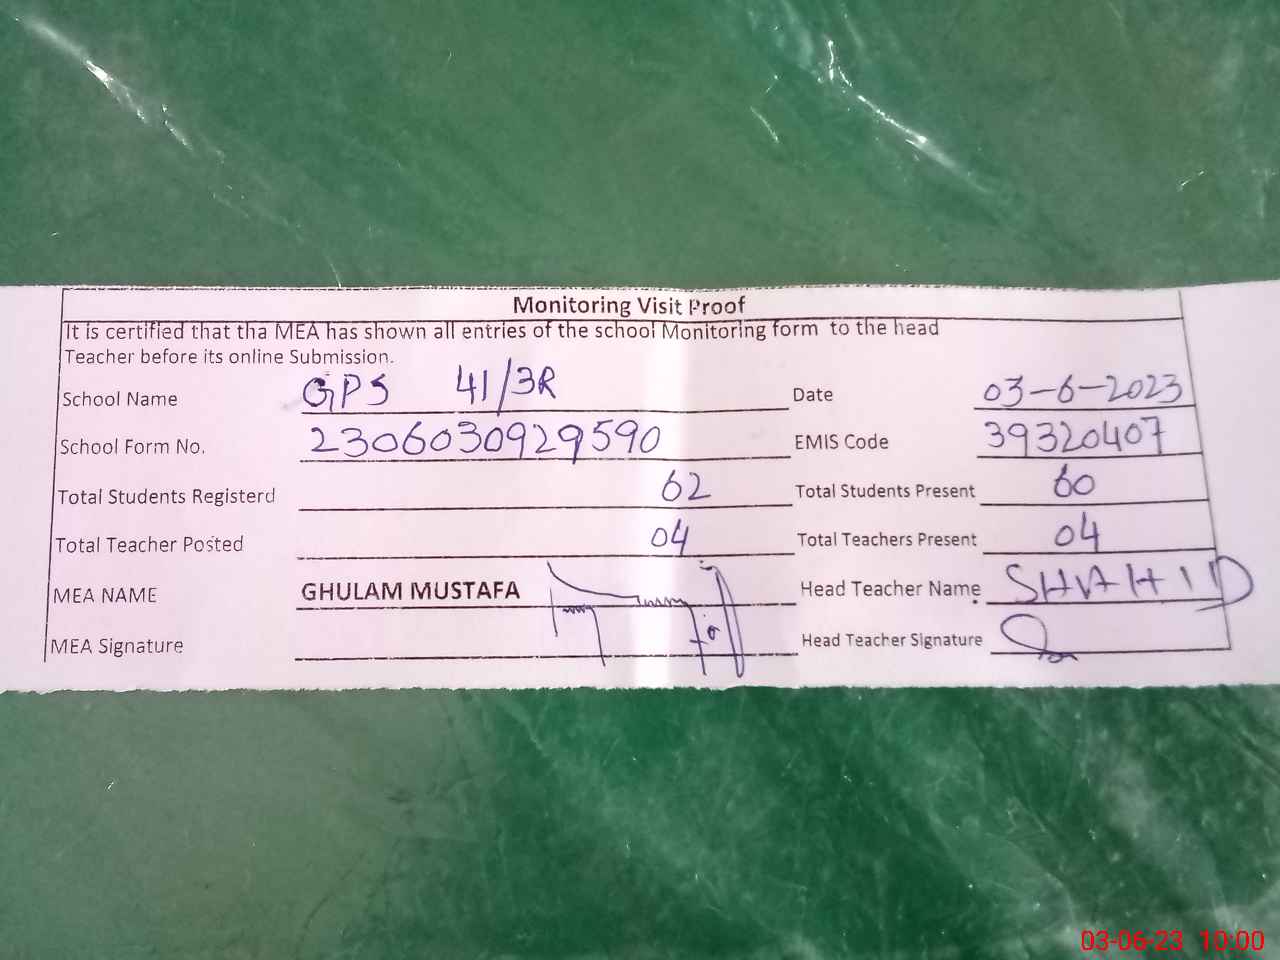 Monitoring Visit Proof
It is certified that tha MEA has shown all entries of the school Monitoring form to the head
Teacher before its online Submission.
School Name GPS 41/3R Date 03-6-2023
School Form No. 2306030929590 EMIS Code 39320407
Total Students Registerd 62 Total Students Present 60
Total Teacher Posted 04 Total Teachers Present 04
MEA NAME GHULAM MUSTAFA Head Teacher Name SHAHID
MEA Signature Head Teacher Signature
03-06-23 10:00